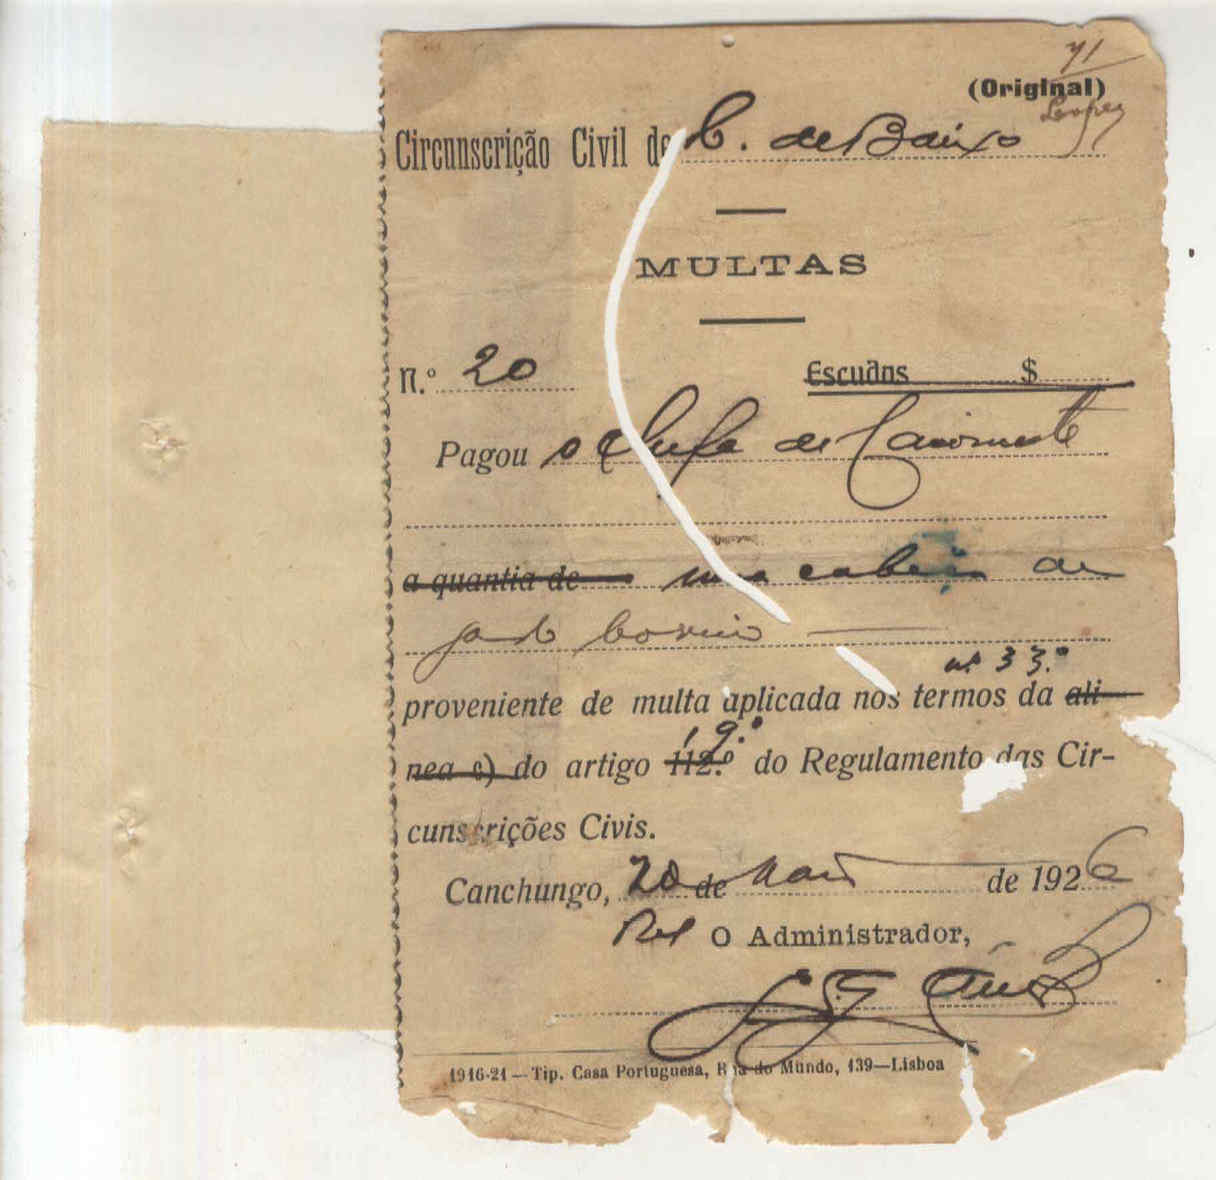 71
(Original)
Lopes
Circunscrição Civil de C. de Baixo
MULTAS
N.º 20 Escudos $
Pagou o Chefe de
a quantia de uma cabeça de
gado bovino
nº 33.º
proveniente de multa aplicada nos termos da ali-
9.º
nea c) do artigo 112.º do Regulamento das Cir-
cunscrições Civis.
Canchungo, 20 de Maio de 1926
Pel O Administrador,
1916-21 — Tip. Casa Portuguesa, Rua do Mundo, 139—Lisboa